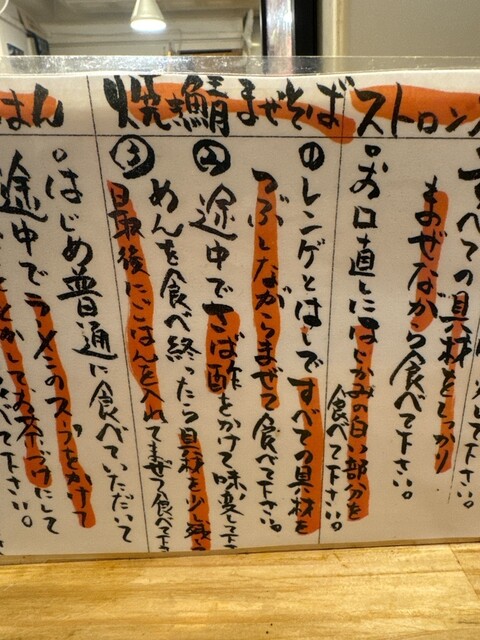 ストロン
すべての具材をしっかり
まぜながら食べて下さい。
。お口直しにはじかみの白い部分を
食べて下さい。
焼き鯖まぜそば
①レンゲとはしですべての具材を
つぶしながらまぜて食べて下さい。
②途中でさば酢をかけて味変して下さ
めんを食べ終ったら具材を少し残し
③最後にごはんを入れてまぜて食べて下さ
はん
。はじめ普通に食べていただいて
途中でラーメンのスープをかけて
お茶づけにして